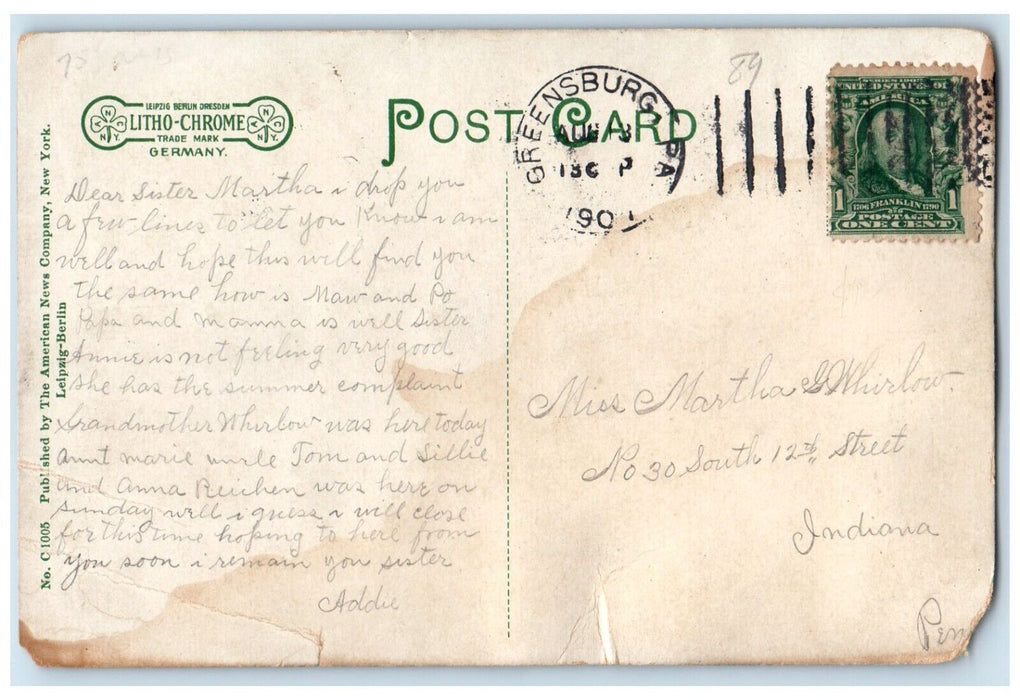 89
LEIPZIG BERLIN DRESDEN
LITHO-CHROME
TRADE MARK
GERMANY.
POST CARD
GREENSBURG, PA
AUG 13
190
SERIES 1902
UNITED STATES OF
AMERICA
1 1706 FRANKLIN 1790 1
POSTAGE
ONE CENT
No. C 1005 Published by The American News Company, New York.
Leipzig-Berlin
Dear Sister Martha i drop you
a few lines to let you Know i am
well and hope this will find you
the same how is Maw and Po
Papa and mamma is well Sister
Annie is not feeling very good
she has the summer complaint
Grandmother Whirlow was here today
aunt marie uncle Tom and Sillie
and Anna Reichen was here on
sunday well i guess i will close
for this time hoping to here from
you soon i remain you sister
Addie
Miss Martha G Whirlow.
No 30 South 12th Street
Indiana
Penn